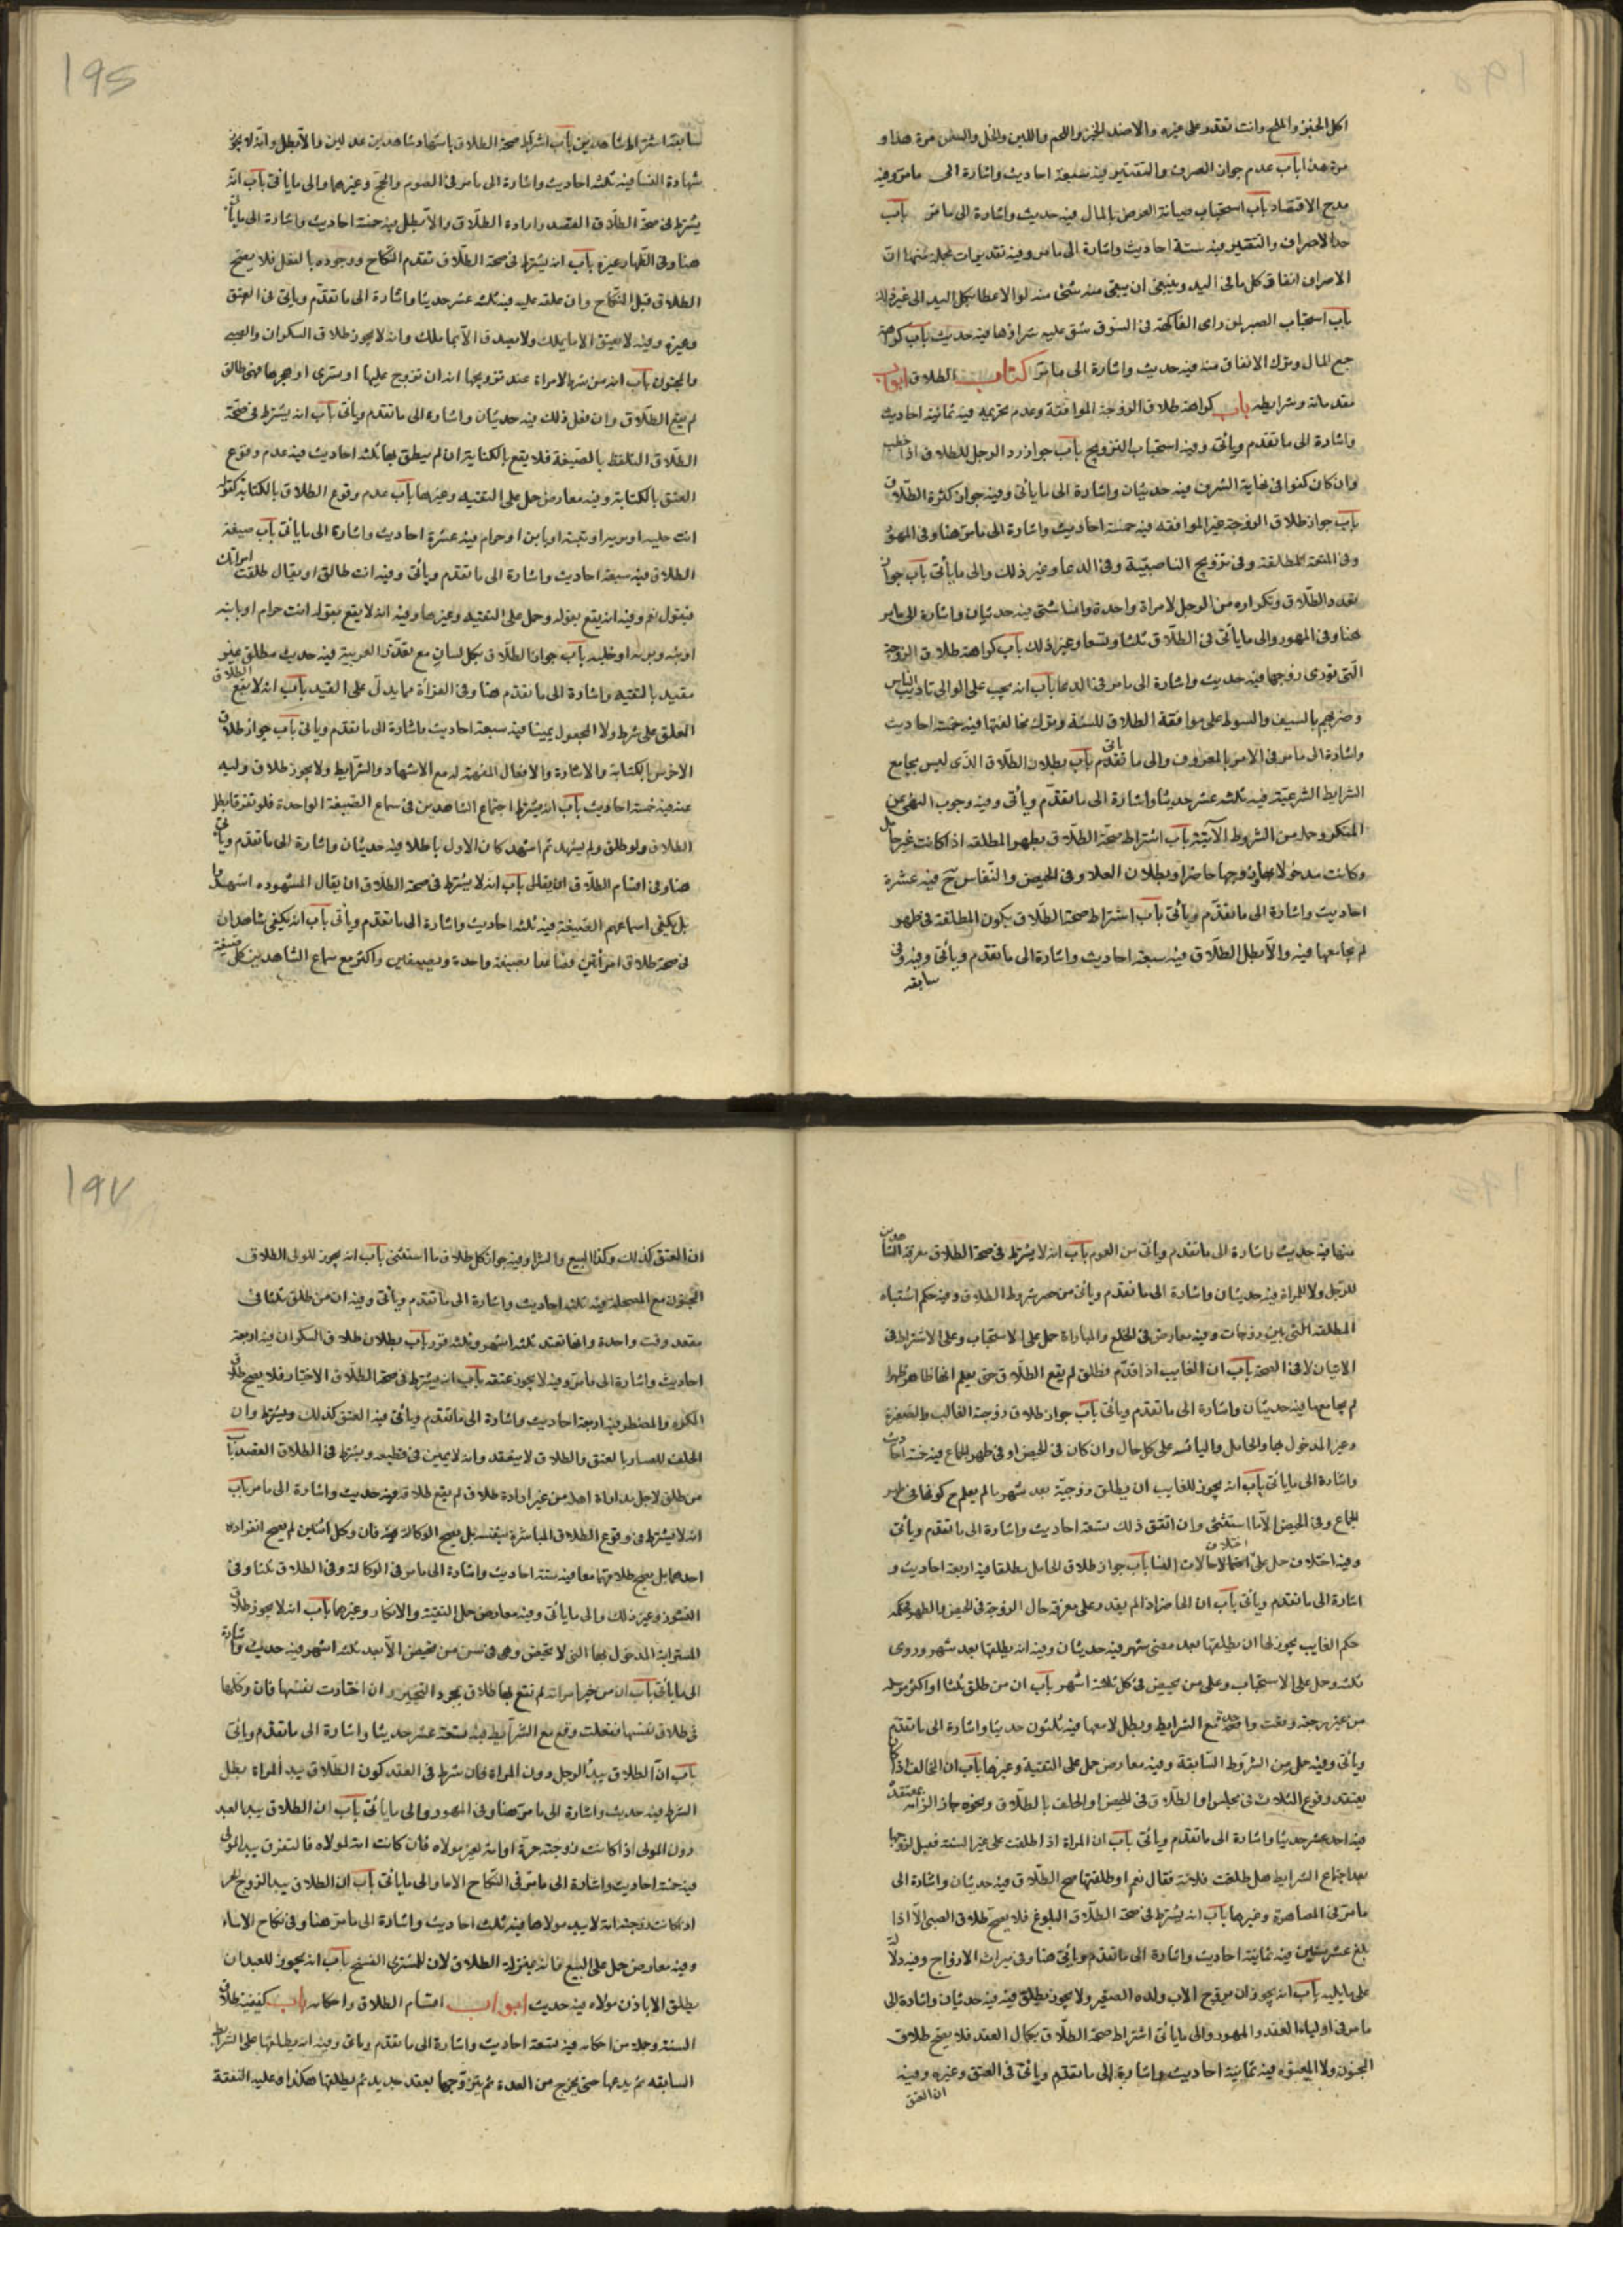 اكل الخبز والملح وانت تقدر على غيره والاصد الخبز واللحم واللبن والخل والسمن مرة هذا و
مرة هذا باب عدم جواز السرف والتقتير فيه سبعة احاديث واشارة الى مامر وفيه
مدح الاقتصاد باب استحباب صيانة العرض بالمال فيه حديث واشارة الى مامر باب
حد الاسراف والتقتير فيه ستة احاديث واشارة الى مامر وفيه تقديرات مجملة منها ان
الاسراف انفاق كل مافى اليد وينبغى ان يبقى منه شئ منه لو الاعطا بكل اليد الى غير ذلك
باب استحباب الصبر لمن راى الفاكهة فى السوق شق عليه شراؤها فيه حديث باب كراهة
جمع المال وترك الانفاق منه فيه حديث واشارة الى مامر كتاب الطلاق ابواب
مقدماته وشرايطه باب كراهة طلاق الزوجة الموافقة وعدم تحريمه فيه ثمانية احاديث
واشارة الى ماتقدم وياتى وفيه استحباب التزويج باب جواز رد الرجل المطلاق اذا خطب
وان كان كفوا فى نهاية الشرف فيه حديثان واشارة الى ماياتى وفيه جواز كثرة الطلاق
باب جواز طلاق الزوجة غير الموافقه فيه خمسة احاديث واشارة الى مامر هنا وفى المهور
وفى المتعة للمطلقة وفى تزويج الناصبية وفى الدعا وغير ذلك والى ماياتى باب جواز
تعدد الطلاق وتكراره من الرجل لامراة واحدة ولنسا شتى فيه حديثان واشارة الى مامر
هنا وفى المهور والى ماياتى فى الطلاق ثلثا وتسعا وغير ذلك باب كراهة طلاق الزوجة
التى تؤدى زوجها فيه حديث واشارة الى مامر فى الدعا باب انه يجب على الوالى تاديب الناس
وضربهم بالسيف والسوط على موافقة الطلاق للسنة وترك مخالفتها فيه خمسة احاديث
واشارة الى مامر فى الامر بالمعروف والى ما ياتى تقدم باب بطلان الطلاق الذى ليس بجامع
الشرايط الشرعية فيه ثلثه عشر حديثا واشارة الى ماتقدم وياتى وفيه وجوب النهى عن
المنكر وجملة من الشروط الآتية باب اشتراط صحة الطلاق بطهر المطلقه اذا كانت غير حامل
وكانت مدخولا بها وزوجها حاضرا وبطلان الطلاق فى الحيض والنفاس ح فيه عشرة
احاديث واشارة الى ماتقدم وياتى باب اشتراط صحة الطلاق بكون المطلقة فى طهر
لم يجامعها فيه والا بطل الطلاق فيه سبعة احاديث واشارة الى ماتقدم وياتى وفيه وفى
سابقه
195
سابقه اشتراط شاهدين باب اشتراط صحة الطلاق باشهاد شاهدين عدلين والا بطل وانه لايجوز
شهادة النسا فيه ثلثه احاديث واشارة الى مامر فى الصوم والحج وغيرهما والى ماياتى باب انه
يشترط فى صحة الطلاق القصد وارادة الطلاق والا بطل فيه خمسة احاديث واشارة الى ماياتى
هنا وفى الظهار وغيره باب انه يشترط فى صحة الطلاق تقدم النكاح ووجوده بالفعل فلا يصح
الطلاق قبل النكاح وان علقه عليه فيه ثلثه عشر حديثا واشارة الى ماتقدم وياتى فى العتق
وغيره وفيه لا يعتق الا مايملك ولا يصدق الا بما ملك وانه لايجوز طلاق السكران والصبى
والمجنون باب انه من شرط لامراة عند تزويجها انه ان تزوج عليها او تسرى او هجرها فهى طالق
لم يقع الطلاق وان فعل ذلك فيه حديثان واشارة الى ماتقدم وياتى باب انه يشترط فى صحة
الطلاق التلفظ بالصيغة فلا يقع بالكناية ان لم ينطق بها ثلثه احاديث فيه عدم وقوع
العتق بالكتابة وفيه معارض حمل على التقيه وغيرها باب عدم وقوع الطلاق بالكناية كقوله
انت خلية او برية او بتة او باين او حرام فيه عشرة احاديث واشارة الى ماياتى باب صيغة
الطلاق فيه سبعة احاديث واشارة الى ماتقدم وياتى وفيه انت طالق او يقال طلقت امراتك
فيقول نعم وفيه انه يقع بقوله وحمل على التقية وغيرها وفيه انه لا يقع بقوله انت حرام او باينه
او بته وبريه او خليه باب جواز الطلاق بكل لسان مع تعذر العربية فيه حديث مطلق غير
مقيد بالتقيه واشارة الى ماتقدم هنا وفى القراة مما يدل على القيد باب انه لا يقع الطلاق
المعلق على شرط ولا المجعول يمينا فيه سبعة احاديث واشارة الى ماتقدم وياتى باب جواز طلاق
الاخرس بالكتابة والاشارة والافعال المفهمة له مع الاشهاد والشرايط ولا يجوز طلاق وليه
عنه فيه خمسة احاديث باب انه يشترط اجتماع الشاهدين فى سماع الصيغة الواحدة فلو تفرقا بطل
الطلاق ولو طلق ولم يشهد ثم اشهد كان الاول باطلا فيه حديثان واشارة الى ماتقدم وياتى
هنا وفى اقسام الطلاق باب انه لا يشترط فى صحة الطلاق ان يقال للشهود اشهدوا
بل يكفى اسماعهم الصيغة فيه ثلثه احاديث واشارة الى ماتقدم وياتى باب انه يكفى شاهدان
فى صحة طلاق امراتين فصاعدا بصيغة واحدة وبصيغتين واكثر مع سماع الشاهدين كل صيغة
منها فيه حديث واشارة الى ماتقدم وياتى من العموم باب انه لا يشترط فى صحة الطلاق معرفة الشاهدين
للرجل ولا للمراة فيه حديثان واشارة الى ماتقدم وياتى من حصر شروط الطلاق وفيه حكم اشتباه
المطلقه التى بين زوجات وفيه معارض فى الخلع والمباراة حمل على الاستحباب وعلى الاشتراط فى
الاتيان لا فى الصحة باب ان الغايب اذا قدم فطلق لم يقع الطلاق حتى يعلم انها طاهر طهرا
لم يجامعها فيه حديثان واشارة الى ماتقدم وياتى باب جواز طلاق زوجة الغايب والصغيرة
وغير المدخول بها والحامل واليائسه على كل حال وان كان فى الحيض او فى طهر الجماع فيه خمسة احاديث
واشارة الى ماياتى باب انه يجوز للغايب ان يطلق زوجته بعد شهر ما لم يعلم ح كونها فى طهر
الجماع وفى الحيض الا ما استثنى وان اتفق ذلك تسعة احاديث واشارة الى ماتقدم وياتى
وفيه اختلاف حمل على اختلاف الحالات النسا باب جواز طلاق الحامل مطلقا فيه اربعة احاديث و
اشارة الى ماتقدم وياتى باب ان الحاضر اذا لم يقدر على معرفة حال الزوجة فى الحيض والطهر فحكمه
حكم الغايب يجوز لها ان يطلقها بعد مضى شهر فيه حديثان وفيه انه يطلقها بعد شهر وروى
ثلثه وحمل على الاستحباب وعلى من تحيض فى كل ثلثة اشهر باب ان من طلق ثلثا او اكثر مرسله
من غير رجعة وقعت واحدة مع الشرايط وبطل لا معها فيه ثلثون حديثا واشارة الى ماتقدم
وياتى وفيه جمل من الشروط السابقة وفيه معارض حمل على التقية وغيرها باب ان المخالف اذا كان
يعتقد وقوع الثلاث فى مجلس او الطلاق فى الحيض او الحلف بالطلاق ونحوه جاز الزامه بمعتقده
فيه احد عشر حديثا واشارة الى ماتقدم وياتى باب ان المراة اذا طلقت على غير السنة فقيل لزوجها
بعد اجتماع الشرايط هل طلقت فلانة فقال نعم او طلقتها صح الطلاق فيه حديثان واشارة الى
مامر فى المصاهرة وغيرها باب انه يشترط فى صحة الطلاق البلوغ فلا يصح طلاق الصبى الا اذا
بلغ عشر سنين فيه ثمانية احاديث واشارة الى ماتقدم وياتى هنا وفى ميراث الازواج وفيه دلالة
على مايليه باب انه يجوز ان يزوج الاب ولده الصغير ولا يجوز يطلق فيه حديثان واشارة الى
مامر فى اولياء العقد والمهور والى ماياتى اشتراط صحة الطلاق بكمال العقد فلا يصح طلاق
المجنون ولا المعتوه فيه ثمانية احاديث واشارة الى ماتقدم وياتى فى العتق وغيره وفيه
ان العتق
197
ان العتق كذلك وكذا البيع والشرا وفيه جواز كل طلاق ما استثنى باب انه يجوز للولى الطلاق
المجنون مع المصلحة فيه ثلثه احاديث واشارة الى ماتقدم وياتى وفيه ان من طلق ثلثا فى
مقعد وقت واحدة وانها تعتد ثلثه اشهر وثلثه قرء باب بطلان طلاق السكران فيه اربعة
احاديث واشارة الى مامر وفيه لا يجوز عتقه باب انه يشترط فى صحة الطلاق الاختيار فلا يصح طلاق
المكره والمضطر فيه اربعة احاديث واشارة الى ماتقدم وياتى فيه العتق كذلك ويشترط وان
الحلف بالعتق والطلاق لا ينعقد وانه لا يمين فى قطيعه ويشترط فى الطلاق القصد باب
من طلق لاجل مداراة اهله من غير ارادة طلاق لم يقع طلاقه فيه حديث واشارة الى مامر باب
انه لا يشترط فى وقوع الطلاق المباشرة بنفسه بل يصح الوكالة فيه فان وكل اثنين لم يصح انفراد
احدهما بل يصح طلاقهما معا فيه ستة احاديث واشارة الى مامر فى الوكالة وفى الطلاق ثلثا وفى
النشوز وغير ذلك والى ماياتى وفيه معارض حمل التقية والانكار وغيرهما باب انه لا يجوز طلاق
المسترابة المدخول بها التى لا تحيض وهى فى سن من تحيض الا بعد ثلثه اشهر فيه حديث واشارة
الى ماياتى باب ان من خير امراته لم تقع بها طلاق بمجرد التخيير وان اختارت نفسها فان وكلها
فى طلاق نفسها ففعلت وقع مع الشرايط فيه تسعة عشر حديثا واشارة الى ماتقدم وياتى
باب ان الطلاق بيد الرجل دون المراة فان شرط فى العقد كون الطلاق بيد المراة بطل
الشرط فيه حديث واشارة الى مامر هنا وفى المهور والى ماياتى باب ان الطلاق بيد العبد
دون المولى اذا كانت زوجته حرة او امة لغير مولاه فان كانت امة لمولاه فالتفرق بيد المولى
فيه خمسة احاديث واشارة الى مامر فى النكاح الاما والى ماياتى باب ان الطلاق بيد الزوج الحر
اذ كانت زوجته امة لا بيد مولاها فيه ثلثه احاديث واشارة الى مامر هنا وفى نكاح الاماء
وفيه معارض حمل على البيع فانه بمنزلة الطلاق لان للمشترى الفسخ باب انه يجوز للعبد ان
يطلق الا باذن مولاه فيه حديث ابواب اقسام الطلاق واحكامه باب كيفية طلاق
السنة وجملة من احكامه فيه تسعة احاديث واشارة الى ماتقدم وياتى وفيه انه يطلقها على الشرايط
السابقه ثم يدعها حتى يخرج من العدة ثم يتزوجها بعقد جديد ثم يطلقها هكذا وعليه النفقة